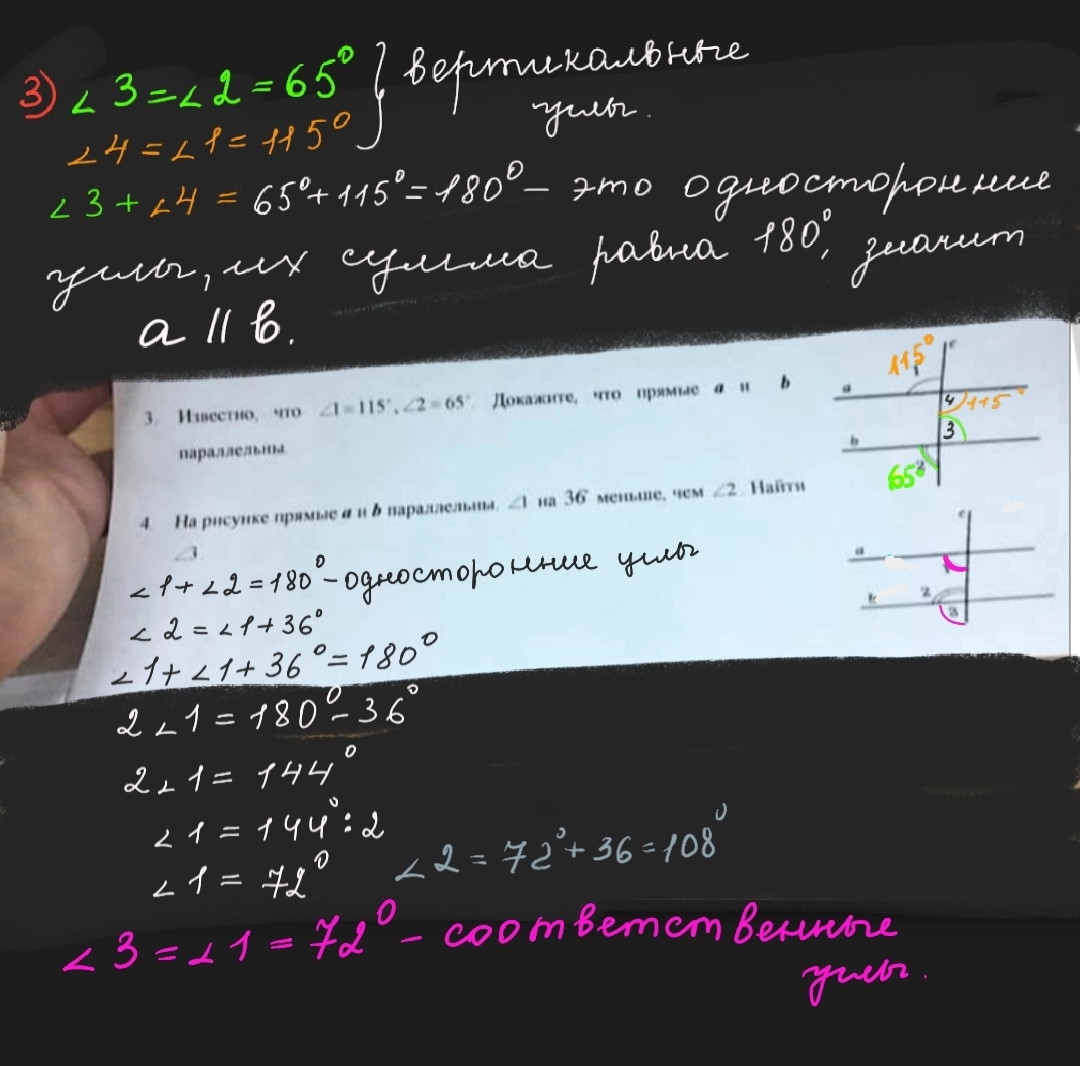 3) ∠3=∠2=65° } вертикальные
∠4=∠1=115° углы.
∠3+∠4 = 65°+115°=180° – это односторонние
углы, их сумма равна 180°, значит
a || в.
115° c
a
4 115°
3
b
65° 2
3. Известно, что ∠1=115°, ∠2=65°. Докажите, что прямые a и b
параллельны.
4. На рисунке прямые a и b параллельны. ∠1 на 36° меньше, чем ∠2. Найти
∠3
c
a
1
b 2
3
∠1+∠2=180° – односторонние углы
∠2=∠1+36°
∠1+∠1+36°=180°
2∠1=180°–36°
2∠1=144°
∠1=144°:2
∠1=72° ∠2=72°+36=108°
∠3=∠1=72° – соответственные
углы.